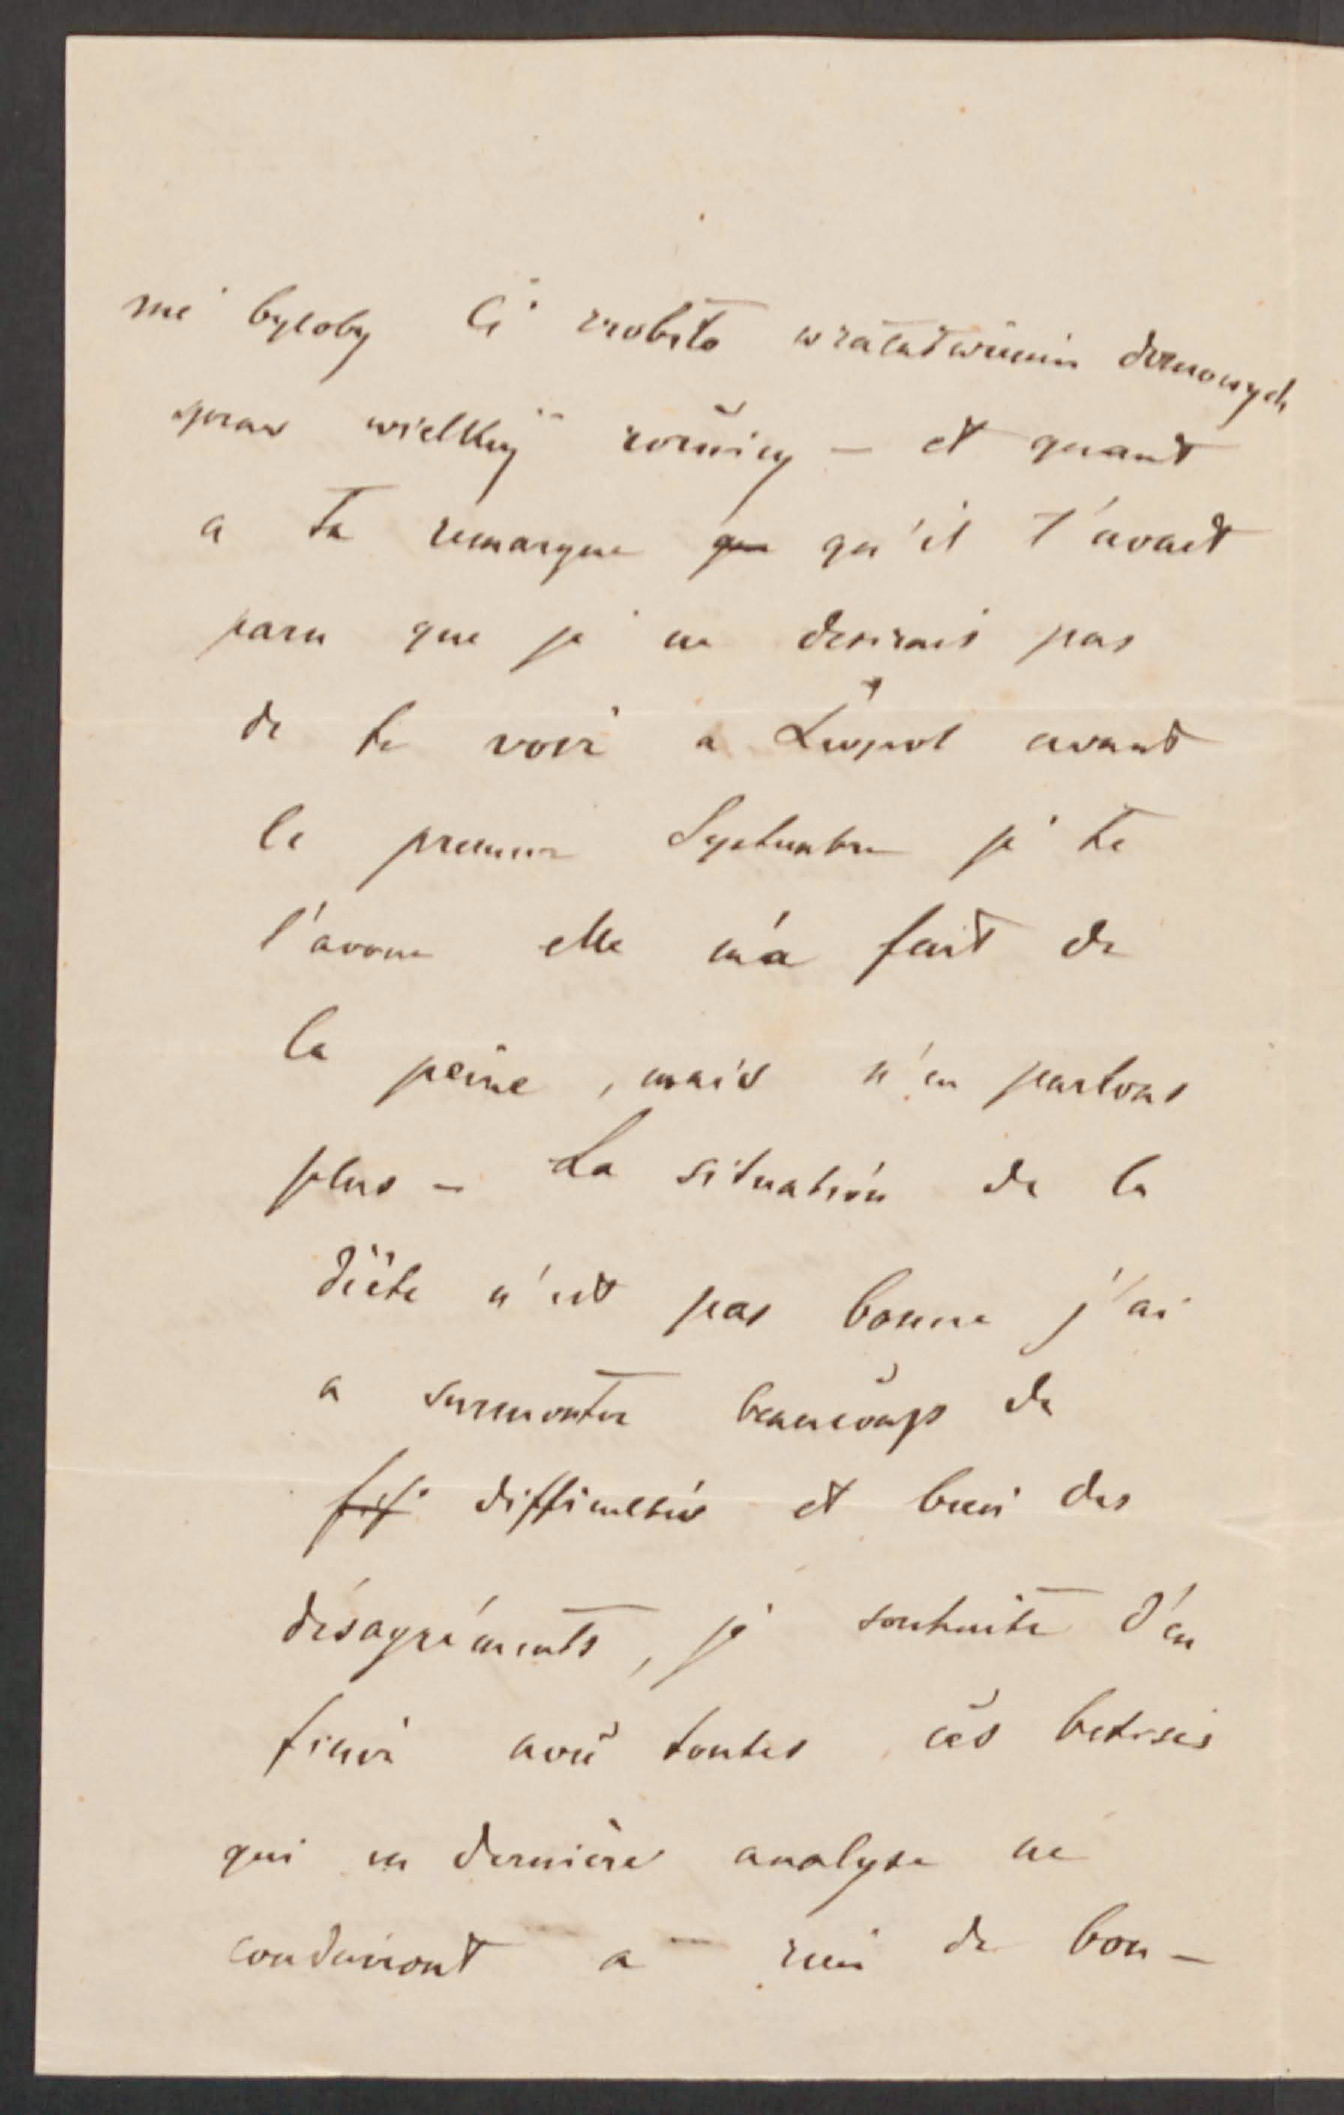 nie byłoby Ci zrobiło w załatwieniu domowych
spraw wielkiej rożnicy – et quant
a ta remarque que qu'il t'avait
paru que je ne desirais pas
de te voir a Léopol avant
le premier Septembre je te
l'avoue elle m'a fait de
la peine, mais n'en parlons
plus – La situation de la
diète n'est pas bonne j'ai
a surmonter beaucoup de
difficultés et bien des
désagréments, je souhaite d'en
finir avec toutes ces betises
qui en dernière analyse ne
conduiront a rien de bon –